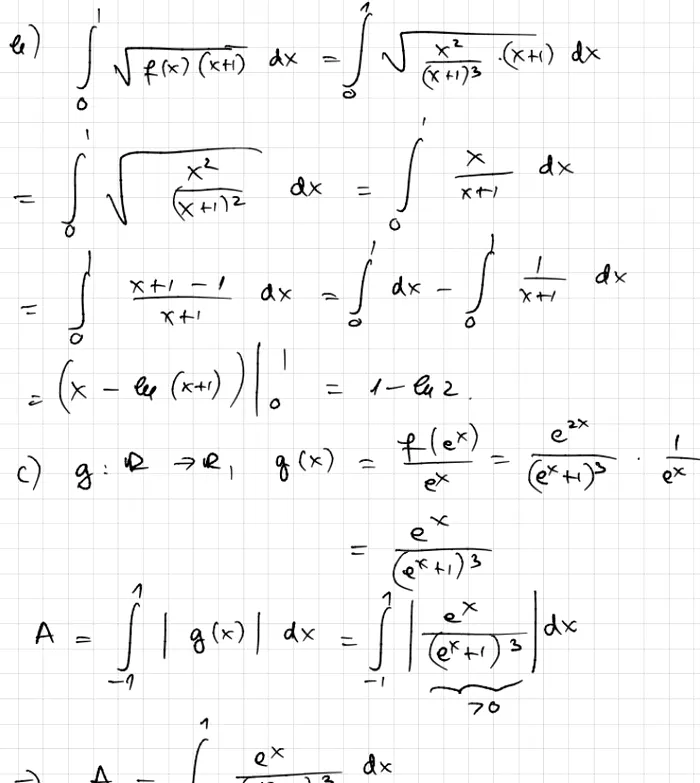 b) ∫₀¹ √(f(x)(x+1)) dx = ∫₀¹ √(x²/(x+1)³ · (x+1)) dx
= ∫₀¹ √(x²/(x+1)²) dx = ∫₀¹ x/(x+1) dx
= ∫₀¹ (x+1-1)/(x+1) dx = ∫₀¹ dx - ∫₀¹ 1/(x+1) dx
= (x - ln(x+1)) |₀¹ = 1 - ln 2.
c) g: ℝ → ℝ, g(x) = f(eˣ)/eˣ = e²ˣ/(eˣ+1)³ · 1/eˣ
= eˣ/(eˣ+1)³
A = ∫₋₁¹ |g(x)| dx = ∫₋₁¹ |eˣ/(eˣ+1)³| dx
>0
⇒ A = ∫¹ eˣ/(eˣ+1)³ dx